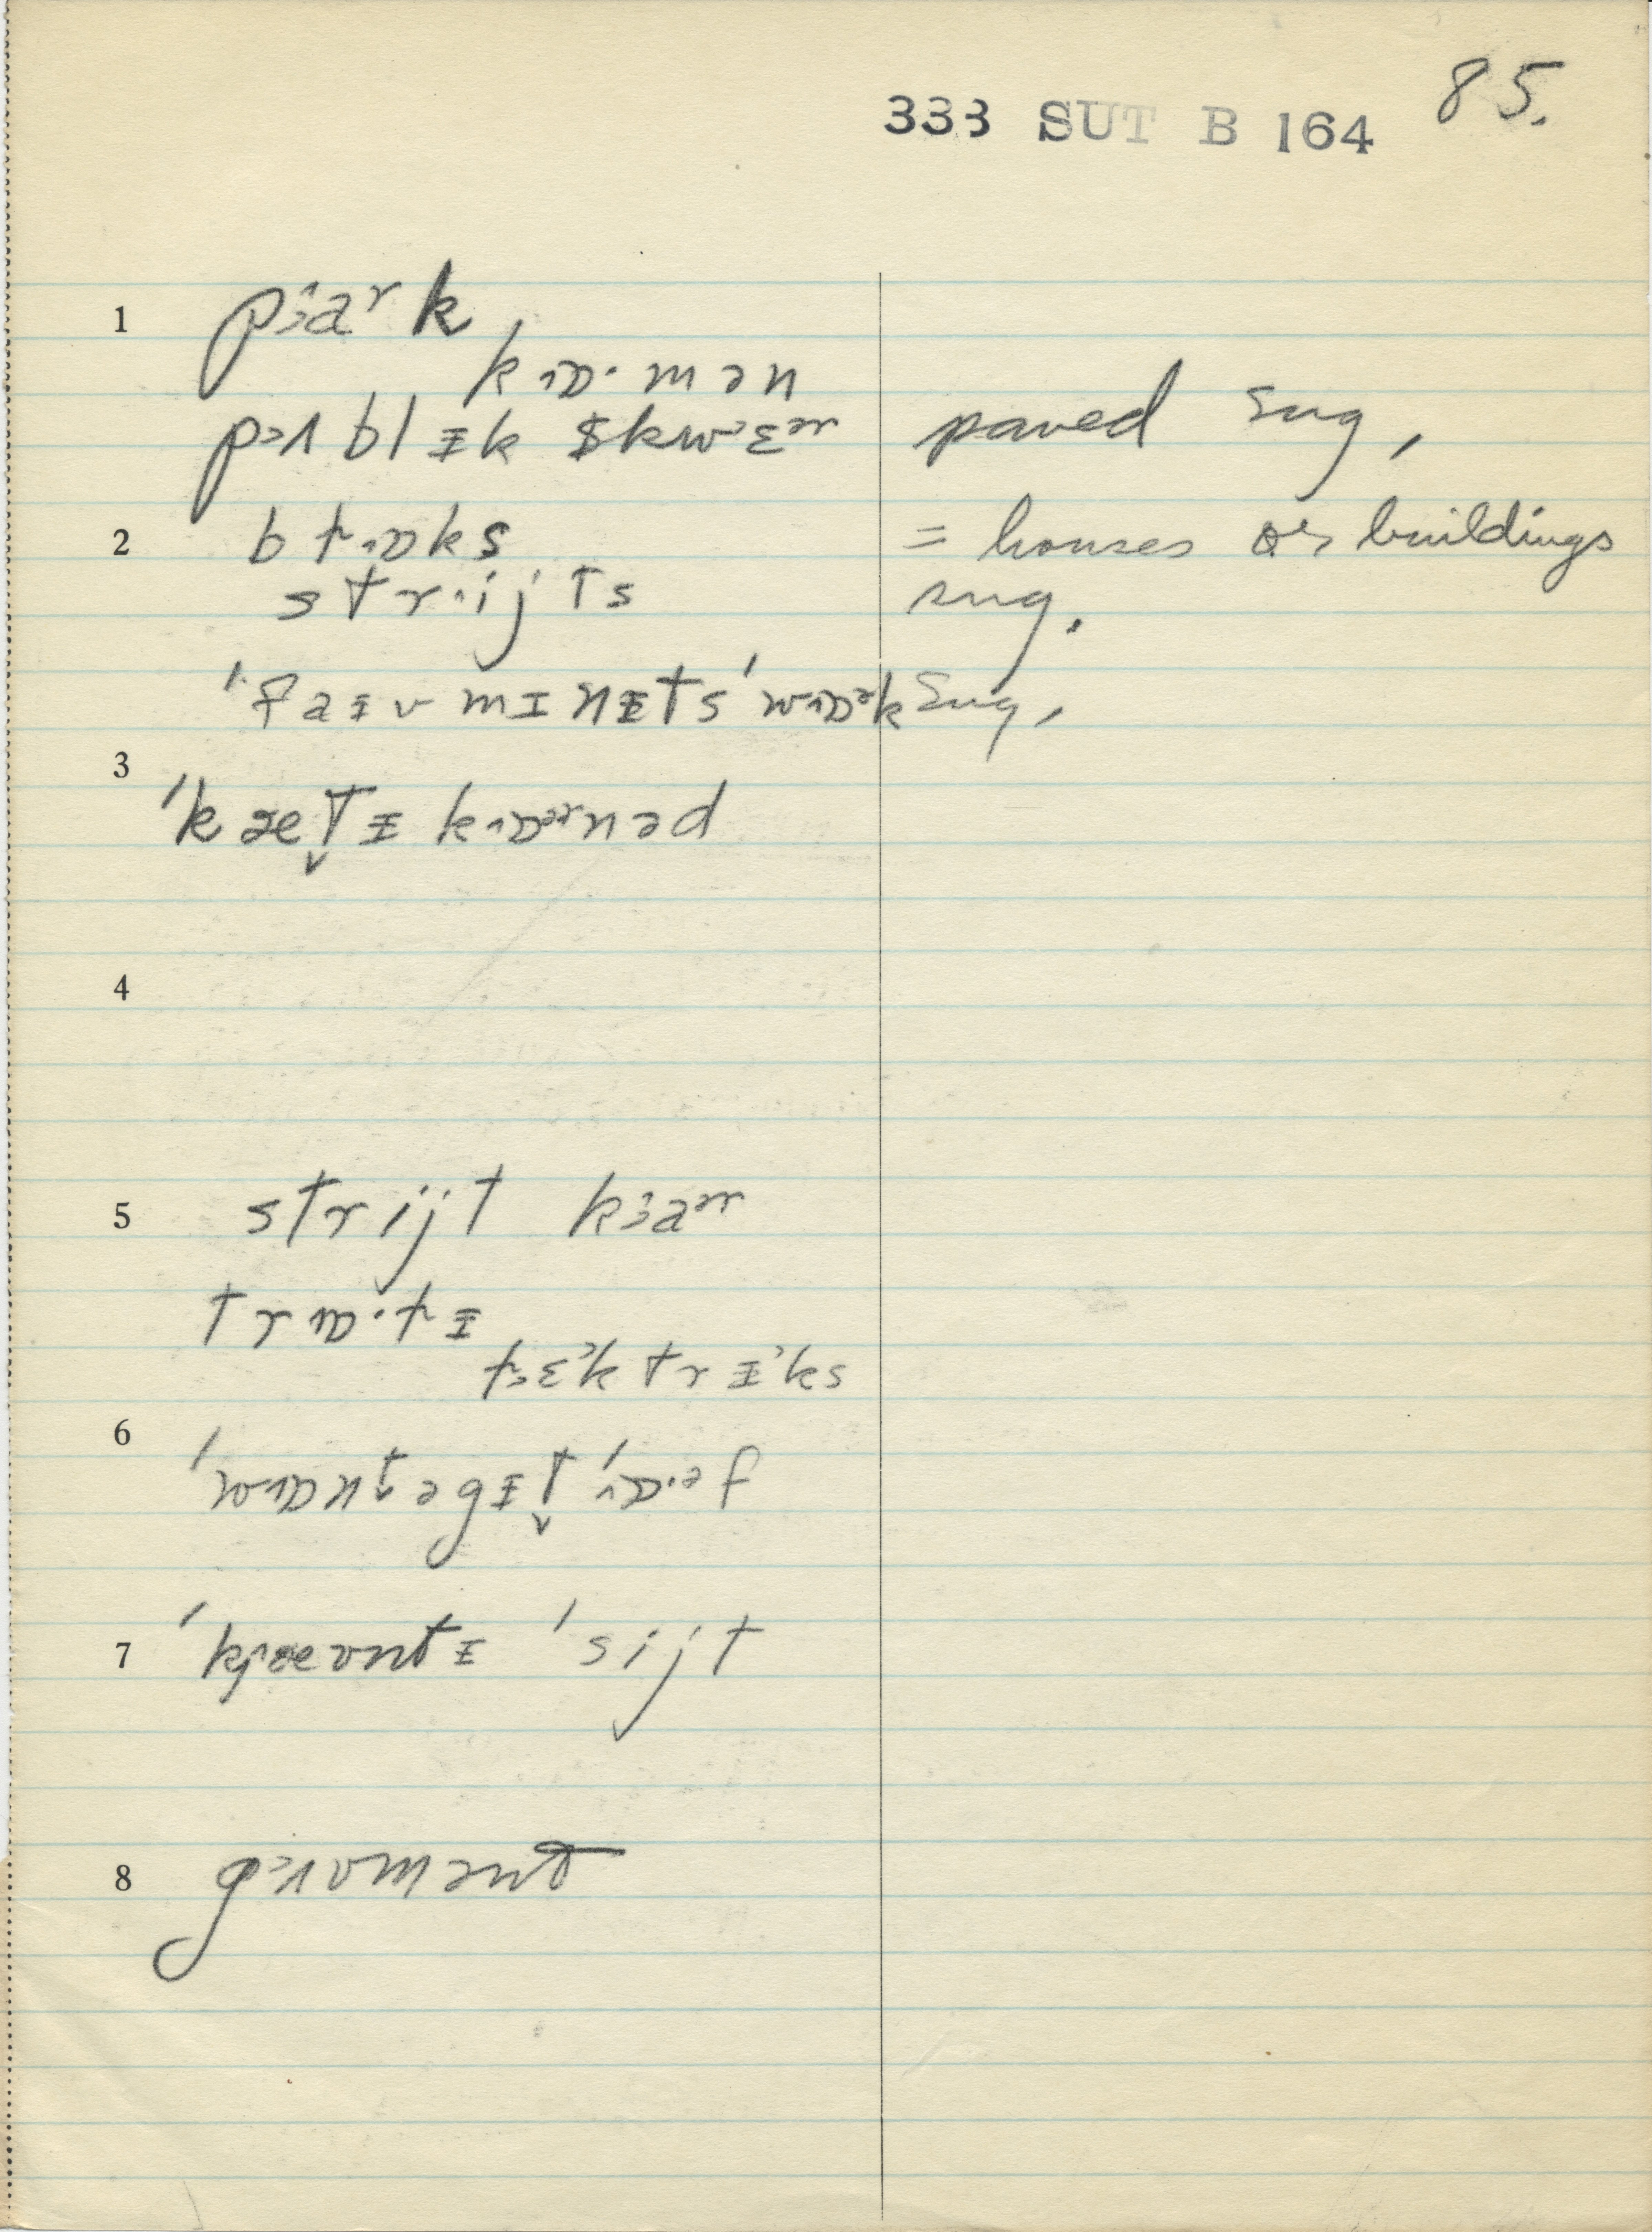 85.
333 SUT B 164
1 pɜaʳk
kɒ·mən
pɜʌblɪ̵k skwɛəʳ paved sug,
2 bɫɒks = houses or buildings
strijts sug.
ˈfaɪ̵vmɪnɪ̵tsˈwɒəʳk sug,
3 ˈkæt̬ɪ̵kɒəʳnəd
4
5 strijt kɜaəʳ
trɒ·ɫɪ̵
ɫɛktrɪ̵ks
6 ˈwɒntəgɪ̵t̬ˈɒ·əf
7 ˈkæʊntɪ̵ ˈsijt
8 gɜʌvmənt